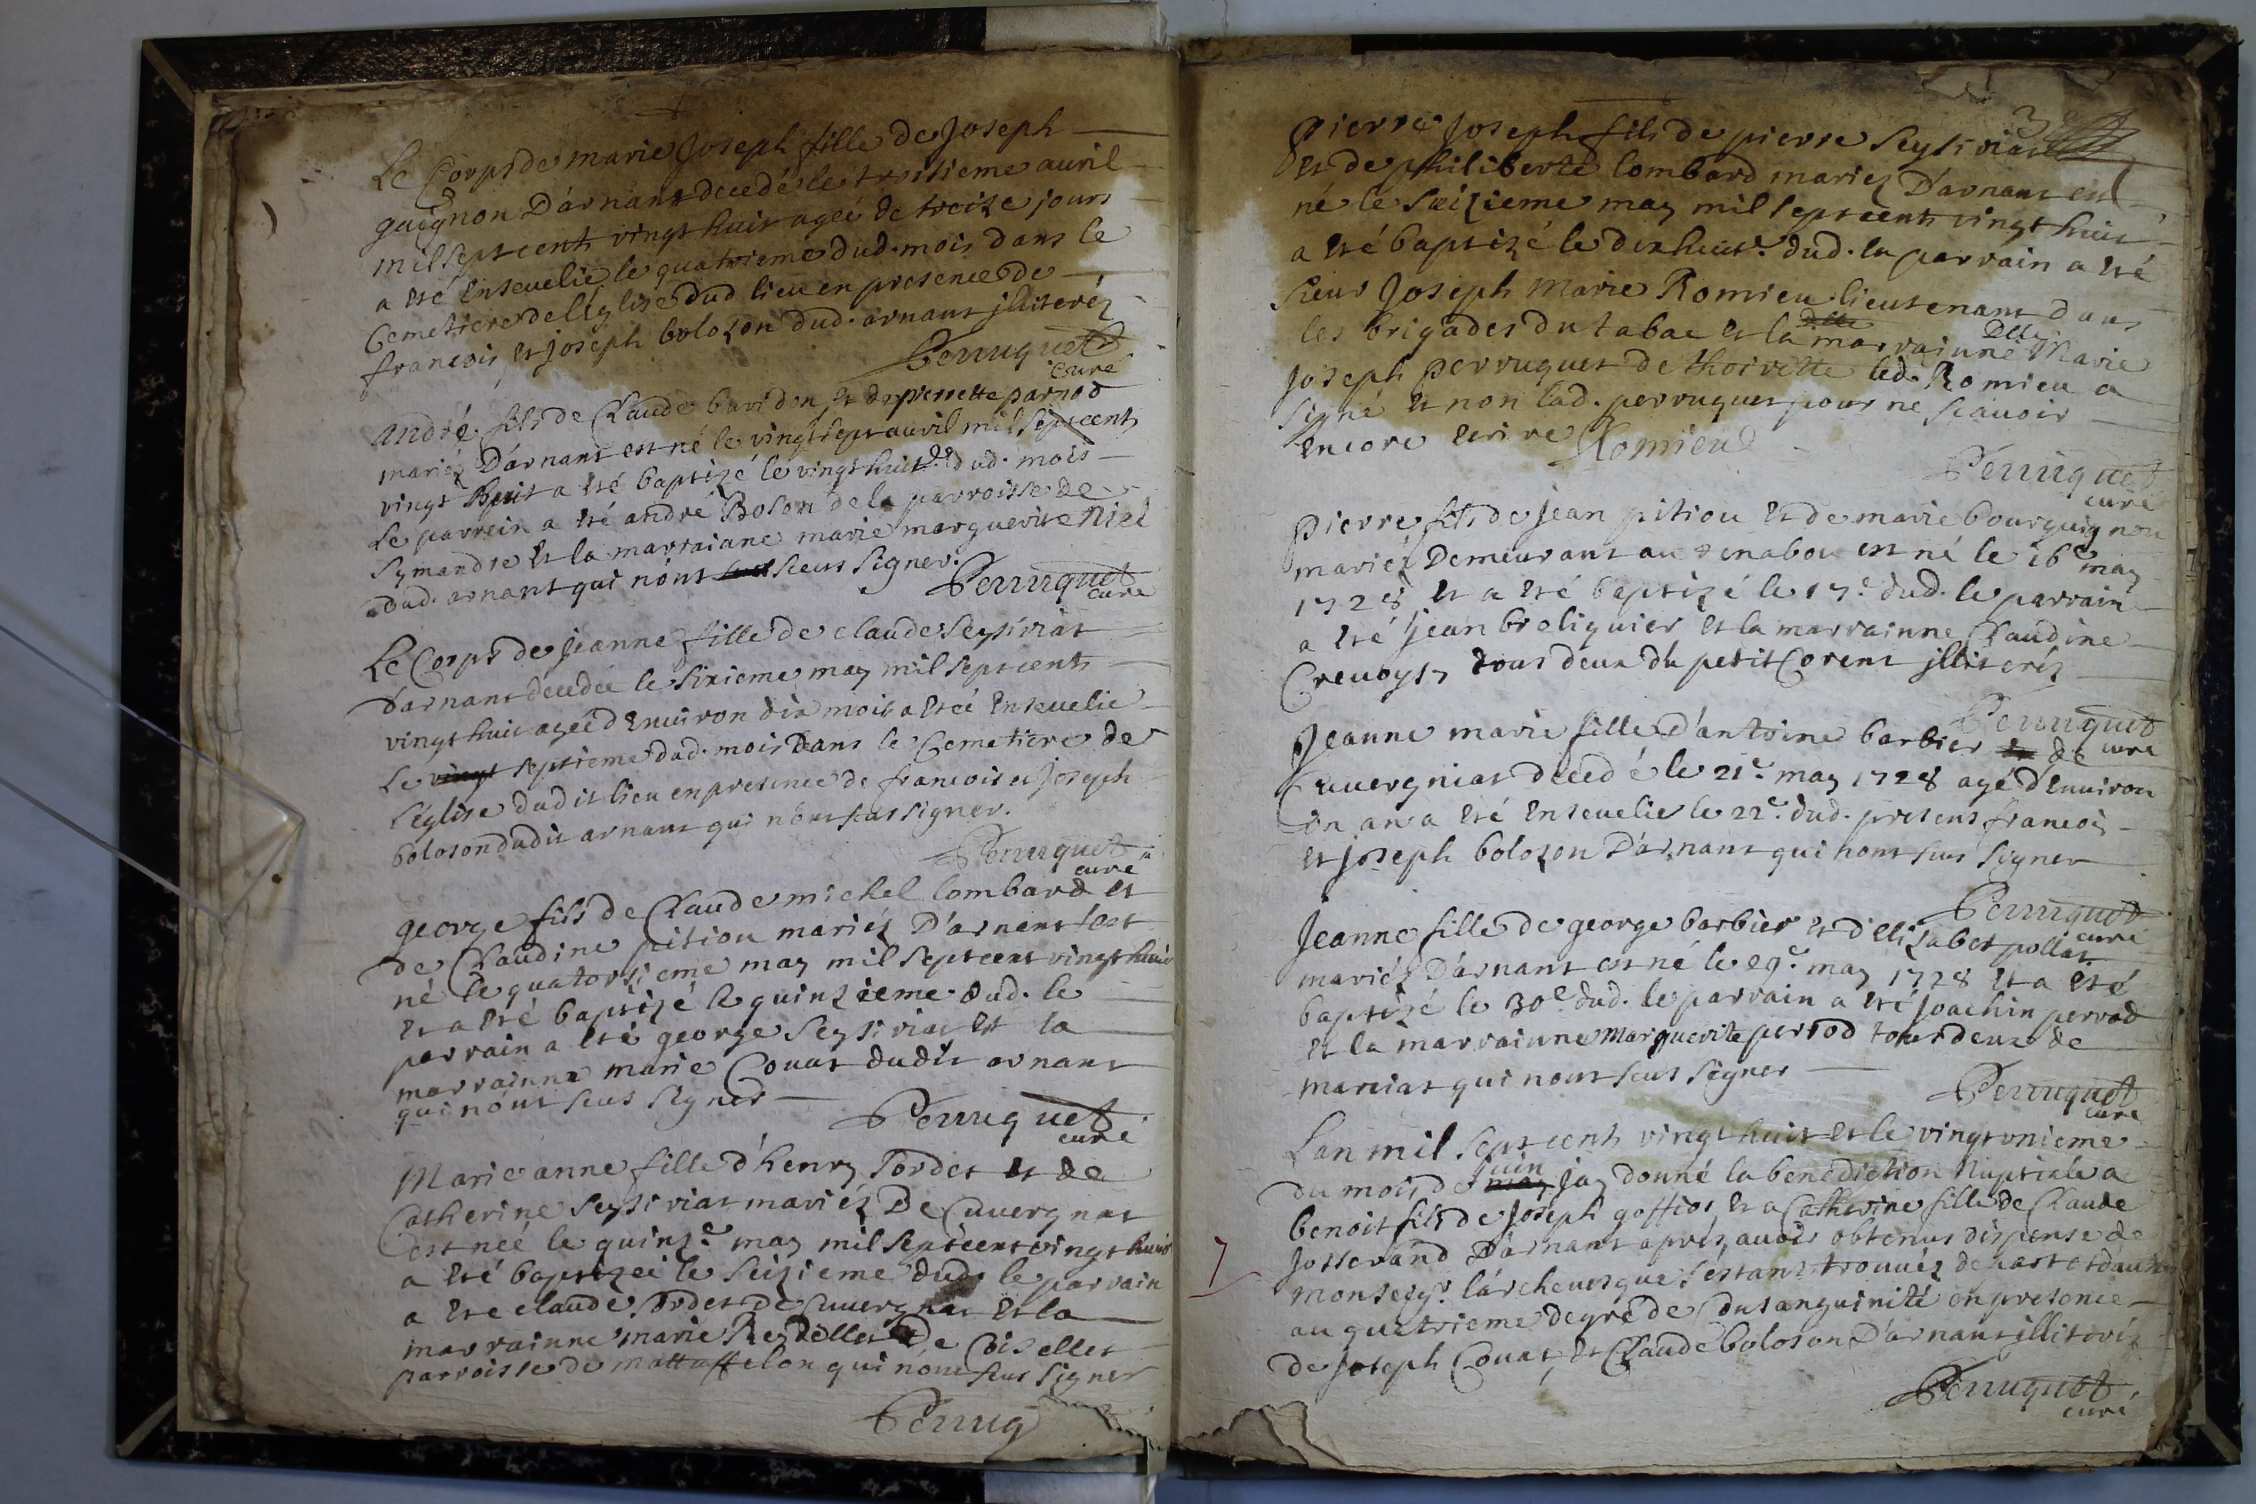 Le Corps de marie Joseph fille de Joseph
guignon D'arnant decedé le troisieme auril
mil sept cent vingt huit ageé de treize jours
a eté Enseuelie le quatrieme dud. mois dans le
Cemetiere de leglise dud. lieu en presence de
francois et joseph bolozon dud. arnant jlliteréz
Perruquet
curé
andré fils de Claude baridon et de pierrette parrod
mariéz D'arnant est né le vingt sept auril mil sept cent
vingt huit a eté baptizé le vingt huit dud. mois
Le parrein a eté andré Bolon de la parroisse de
Symandre et la marraiane marie marguerite niel
dud. arnant qui n'ont sceus signer.
Perruquet
curé
Le Corps de jeanne fille de claude seysiriat
d'arnant decedée le sixieme may mil sept cent
vingt huit ageé d'Enuiron dix mois a eteé Enseuelie
le vingt septieme dud. mois dans le Cemetiere de
l'église dudit lieu en presence de francois et Joseph
boloson dudit arnant qui n'ont sceus signer.
Perruquet
curé
george fils de Claude michel lombard et
de Claudine pitiou mariéz D'arnant est
né le quatorzieme may mil sept cent vingt huit
et a eté baptizé le quinzieme dud. le
parrain a eté george seysiriat et la
marrainne marie Couat dudit arnant
qui n'ont sceus signer
Perruquet
curé
Marie anne fille d'henry Tordet et de
Catherine seysiriat mariéz De Cuuergnat
est neé le quinze. may mil sept cent vingt huit
a eté baptizeé le seizieme dud. le parrain
a ete claude Tordet De Cuuergnat et la
marrainne marie Reydellet De Coiselet
parroisse de mattaffelon qui n'ont sceus signer
Perruq
Pierre Joseph fils de pierre seysiriat
et de philiberte lombard mariez D'arnant est
né le seizieme may mil sept cent vingt huit
a eté baptizé le dixhuit.e dud. la parrain a eté
sieur Joseph Marie Romieu lieutenant dans
les brigades du tabac et la marrainne Delle Marie
Joseph perruquet de thoirette led. Romieu a
signé et non lad. perruquet pour ne scauoir
encore ecrire Romieu
Perruquet
curé
pierre fils de jean pitiou et de marie bourguignon
mariéz Demeurant au est né le 16e may
1728 et a eté baptizé le 17e. dud. le parrain
a eté jean broliquier et la marrainne Claudine
tous deux du petit Corent jlliteréz
Perruquet
curé
Jeanne marie fille d'antoine barbier de
Cuuergniat decedé le 21e. may 1728 agé d'Enuiron
un an a eté enseuelie le 22e. dud. present francois
et joseph bolozon D'arnant qui n'ont sceus signer
Perruquet
curé
Jeanne fille de george barbier et d'Elizabet pollat
mariéz D'arnant est né le 29e. may 1728 et a eté
baptizé le 30e dud. le parrain a eté joachin perrod
et la marrainne Marguerite perrod tous deux de
marciat qui n'ont sceus signer
Perruquet
curé
Lan mil sept cent vingt huit et le vingt unieme
du mois de juin jay donné la benediction Nuptiale a
benoit fils de Joseph goffios et a Catherine fille de Claude
Josserand D'arnant apres auoir obtenus dispense de
monseigr. l'archeuesque s'estant trouuéz de part et d'autre
au quatrieme degré de Consanguinité en presence
de joseph Couat, et Claude boloson D'arnant jlliteréz
Perruquet
curé